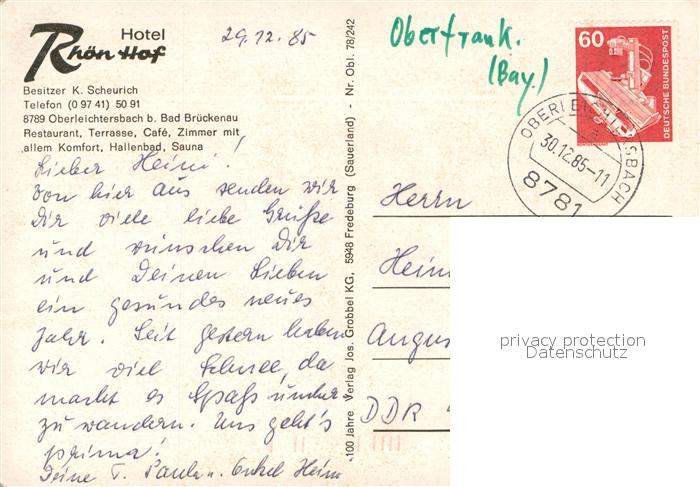 Hotel
Rhön Hof
29.12.85
Besitzer K. Scheurich
Telefon (0 97 41) 50 91
8789 Oberleichtersbach b. Bad Brückenau
Restaurant, Terrasse, Café, Zimmer mit
allem Komfort, Hallenbad, Sauna
Lieber Heini!
Von hier aus senden wir
Dir viele liebe Grüße
und wünschen Dir
und Deinen Lieben
ein gesundes neues
Jahr. Seit gestern haben
wir viel Schnee, da
macht es Spaß
zu wandern. Uns geht's
prima!
Deine T. Paula u. Onkel Heini
100 Jahre Verlag Jos. Grobbel KG, 5948 Fredeburg (Sauerland) - Nr. Obl. 78/242
Oberfrank.
(Bay.)
60
DEUTSCHE BUNDESPOST
30.12.85-11
8781
Herrn
Hein
Augus
DDR
privacy protection
Datenschutz